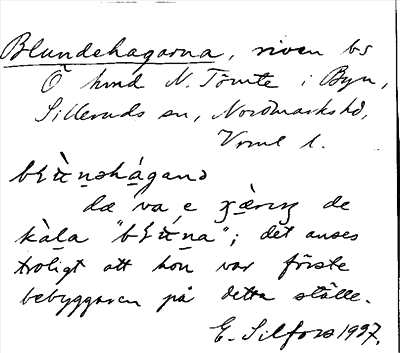 Blundehagarna, riven bs
Ö hmd N. Tomte i Byn,
Silleruds sn, Nordmarks hd,
Vrml l.
da va e de
kàl̠a "bḷn̠a"; det anses
troligt att hon var förste
bebyggaren på detta ställe.
E. Silfors 1937.